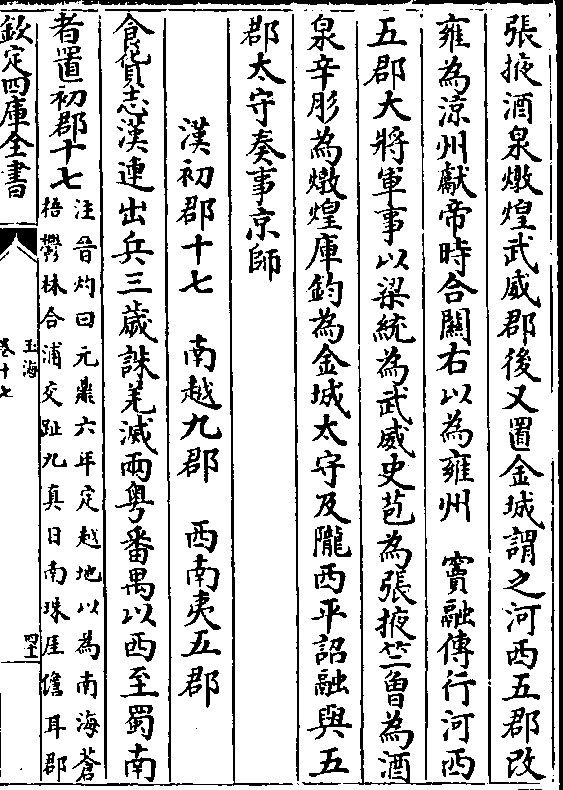 張掖酒泉燉煌武威郡後又置金城謂之河西五郡改
雍為涼州獻帝時合關右以為雍州　竇融傳行河西
五郡大將軍事以梁統為武威史苞為張掖竺曾為酒
泉辛肜為燉煌庫鈞為金城太守及隴西平詔融與五
郡太守奏事京師
漢初郡十七　南越九郡　西南夷五郡
食貨志漢連出兵三歲誅羌滅兩粤番禺以西至蜀南
者置初郡十七注晉灼曰元鼎六年定越地以為南海蒼
梧鬱林合浦交趾九真日南珠厓儋耳郡
欽定四庫全書
玉海
卷十七